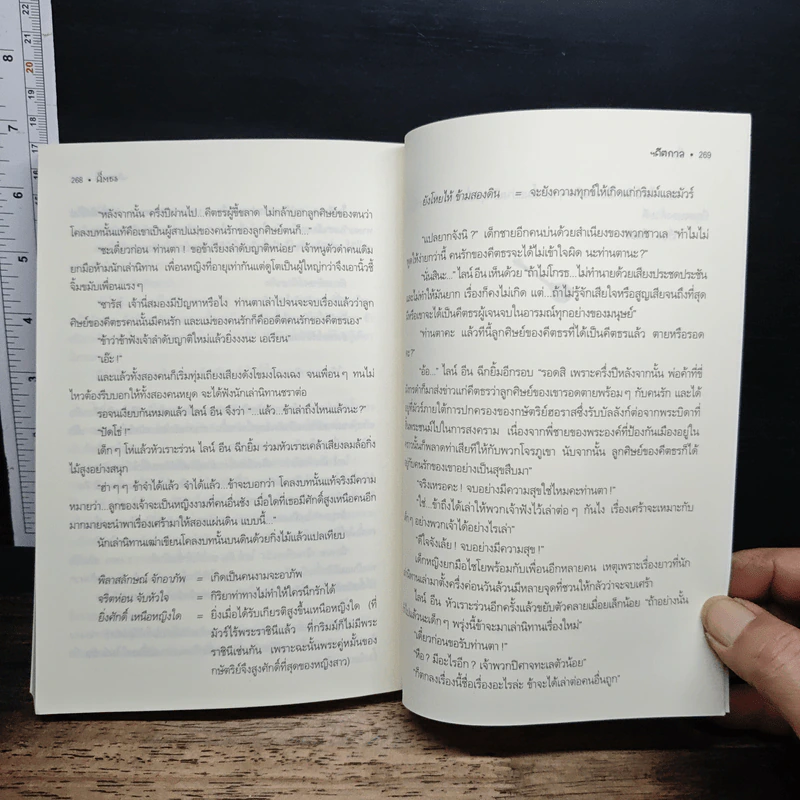 268 • มีเทธ
"หลังจากนั้น ครึ่งปีผ่านไป...คีตธรผู้ขี้ขลาด ไม่กล้าบอกลูกศิษย์ของตนว่า
โคลงบทนั้นแท้คือเขาเป็นผู้สาปแม่ของคนรักของลูกศิษย์ตนก็..."
"ชะเดี๋ยวก่อน ท่านตา ! ขอข้าเรียงลำดับญาติหน่อย" เจ้าหนูตัวดำคนเดิม
ยกมือห้ามนักเล่านิทาน เพื่อนหญิงที่อายุเท่ากันแต่ดูโตเป็นผู้ใหญ่กว่าจึงเอานิ้วชี้
จิ้มขมับเพื่อนแรงๆ
"ซารัส เจ้านี่สมองมีปัญหาหรือไง ท่านตาเล่าไปจนจะจบเรื่องแล้วว่าลูก
ศิษย์ของคีตธรคนนั้นมีคนรัก และแม่ของคนรักก็คืออดีตคนรักของคีตธรเอง"
"ข้าว่าข้าฟังเจ้าลำดับญาติใหม่แล้วยิ่งงงนะ เอเรียน"
"เอ๊ะ !"
และแล้วทั้งสองคนก็เริ่มทุ่มเถียงเสียงดังโขมงโฉงเฉง จนเพื่อนๆ ทนไม่
ไหวต้องรีบบอกให้ทั้งสองคนหยุด จะได้ฟังนักเล่านิทานชราต่อ
รอจนเงียบกันหมดแล้ว ไลน์ อีน จึงว่า "...แล้ว...ข้าเล่าถึงไหนแล้วนะ?"
"ปัดโธ่ !"
เด็กๆ โห่แล้วหัวเราะร่วน ไลน์ อีน ฉีกยิ้ม ร่วมหัวเราะเคล้าเสียงลมล้อกิ่ง
ไม้สูงอย่างสนุก
"ฮ่า ๆ ๆ ข้าจำได้แล้ว จำได้แล้ว...ข้าจะบอกว่า โคลงบทนั้นแท้จริงมีความ
หมายว่า...ลูกของเจ้าจะเป็นหญิงงามที่คนอื่นชัง เมื่อใดที่เธอมีศักดิ์สูงเหนือคนอีก
มากมายจะนำพาเรื่องเศร้ามาให้สองแผ่นดิน แบบนี้..."
นักเล่านิทานเฒ่าเขียนโคลงบทนั้นบนดินด้วยกิ่งไม้แล้วแปลเทียบ
พิลาสลักษณ์ จักอาภัพ = เกิดเป็นคนงามจะอาภัพ
จริตห่อน จับหัวใจ = กิริยาท่าทางไม่ทำให้ใครนึกรักได้
ยิ่งศักดิ์ เหนือหญิงใด = ยิ่งเมื่อได้รับเกียรติสูงขึ้นเหนือหญิงใด (ที่
มัวร์ไร้พระราชินีแล้ว ที่กริมม์ก็ไม่มีพระ
ราชินีเช่นกัน เพราะฉะนั้นพระคู่หมั้นของ
กษัตริย์จึงสูงศักดิ์ที่สุดของหญิงสาว)
• 269
ยังโทยไห้ ข้ามสองดิน = จะยังความทุกข์ให้เกิดแก่กริมม์และมัวร์
"แปลยากจังนิ ?" เด็กชายอีกคนบ่นด้วยสำเนียงของพวกชาวเล "ทำไมไม่
ให้ง่ายกว่านี้ คนรักของคีตธรจะได้ไม่เข้าใจผิด นะท่านตานะ ?"
"นั่นสินะ..." ไลน์ อีน เห็นด้วย "ถ้าไม่โกรธ...ไม่ทำนายด้วยเสียงประชดประชัน
ไม่เท่าให้มันยาก เรื่องก็คงไม่เกิด แต่...ถ้าไม่รู้จักเสียใจหรือสูญเสียจนถึงที่สุด
หรือเขาจะได้เป็นคีตธรผู้เจนจบในอารมณ์ทุกอย่างของมนุษย์"
"ท่านตาคะ แล้วที่นี้ลูกศิษย์ของคีตธรที่ได้เป็นคีตธรแล้ว ตายหรือรอด
คะ ?"
"อ้อ..." ไลน์ อีน ฉีกยิ้มอีกรอบ "รอดสิ เพราะครึ่งปีหลังจากนั้น พ่อค้าที่ขี่
ก็มาส่งข่าวแก่คีตธรว่าลูกศิษย์ของเขารอดตายพร้อมๆ กับคนรัก และได้
ที่มัวร์ภายใต้การปกครองของกษัตริย์ฮอราสซึ่งรับบัลลังก์ต่อจากพระบิดาที่
พระชนม์ไปในการสงคราม เนื่องจากพี่ชายของพระองค์ที่ป้องกันเมืองอยู่ใน
ก็พลาดท่าเสียทีให้กับพวกโจรภูเขา นับจากนั้น ลูกศิษย์ของคีตธรก็ได้
กับคนรักของเขาอย่างเป็นสุขสืบมา"
"จริงเหรอคะ ! จบอย่างมีความสุขใช่ไหมคะท่านตา !"
"ใช่...ข้าถึงได้เล่าให้พวกเจ้าฟังไว้เล่าต่อๆ กันไง เรื่องเศร้าจะเหมาะกับ
อย่างพวกเจ้าได้อย่างไรเล่า"
"ดีใจจังเลย ! จบอย่างมีความสุข !"
เด็กหญิงยกมือไชโยพร้อมกับเพื่อนอีกหลายคน เหตุเพราะเรื่องยาวที่นัก
นิทานเล่ามาตั้งครึ่งค่อนวันล้วนมีหลายจุดที่ชวนให้กลัวว่าจะจบเศร้า
ไลน์ อีน หัวเราะร่วนอีกครั้งแล้วขยับตัวคลายเมื่อยเล็กน้อย "ถ้าอย่างนั้น
ไปแล้วนะเด็กๆ พรุ่งนี้ข้าจะมาเล่านิทานเรื่องใหม่"
"เดี๋ยวก่อนขอรับท่านตา !"
"หือ ? มีอะไรอีก ? เจ้าพวกปีศาจทะเลตัวน้อย"
"ก็ตกลงเรื่องนี้ชื่อเรื่องอะไรล่ะ ข้าจะได้เล่าต่อคนอื่นถูก"